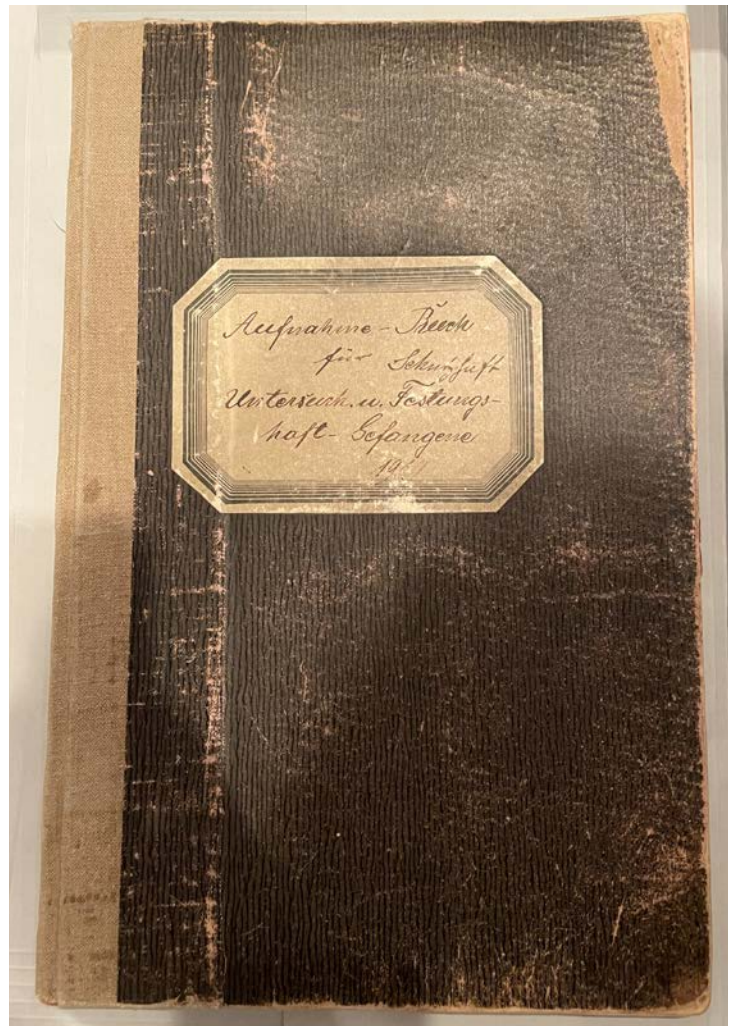 Aufnahme-Buch
für Schutzhaft
Untersuch. u. Festungs-
haft-Gefangene